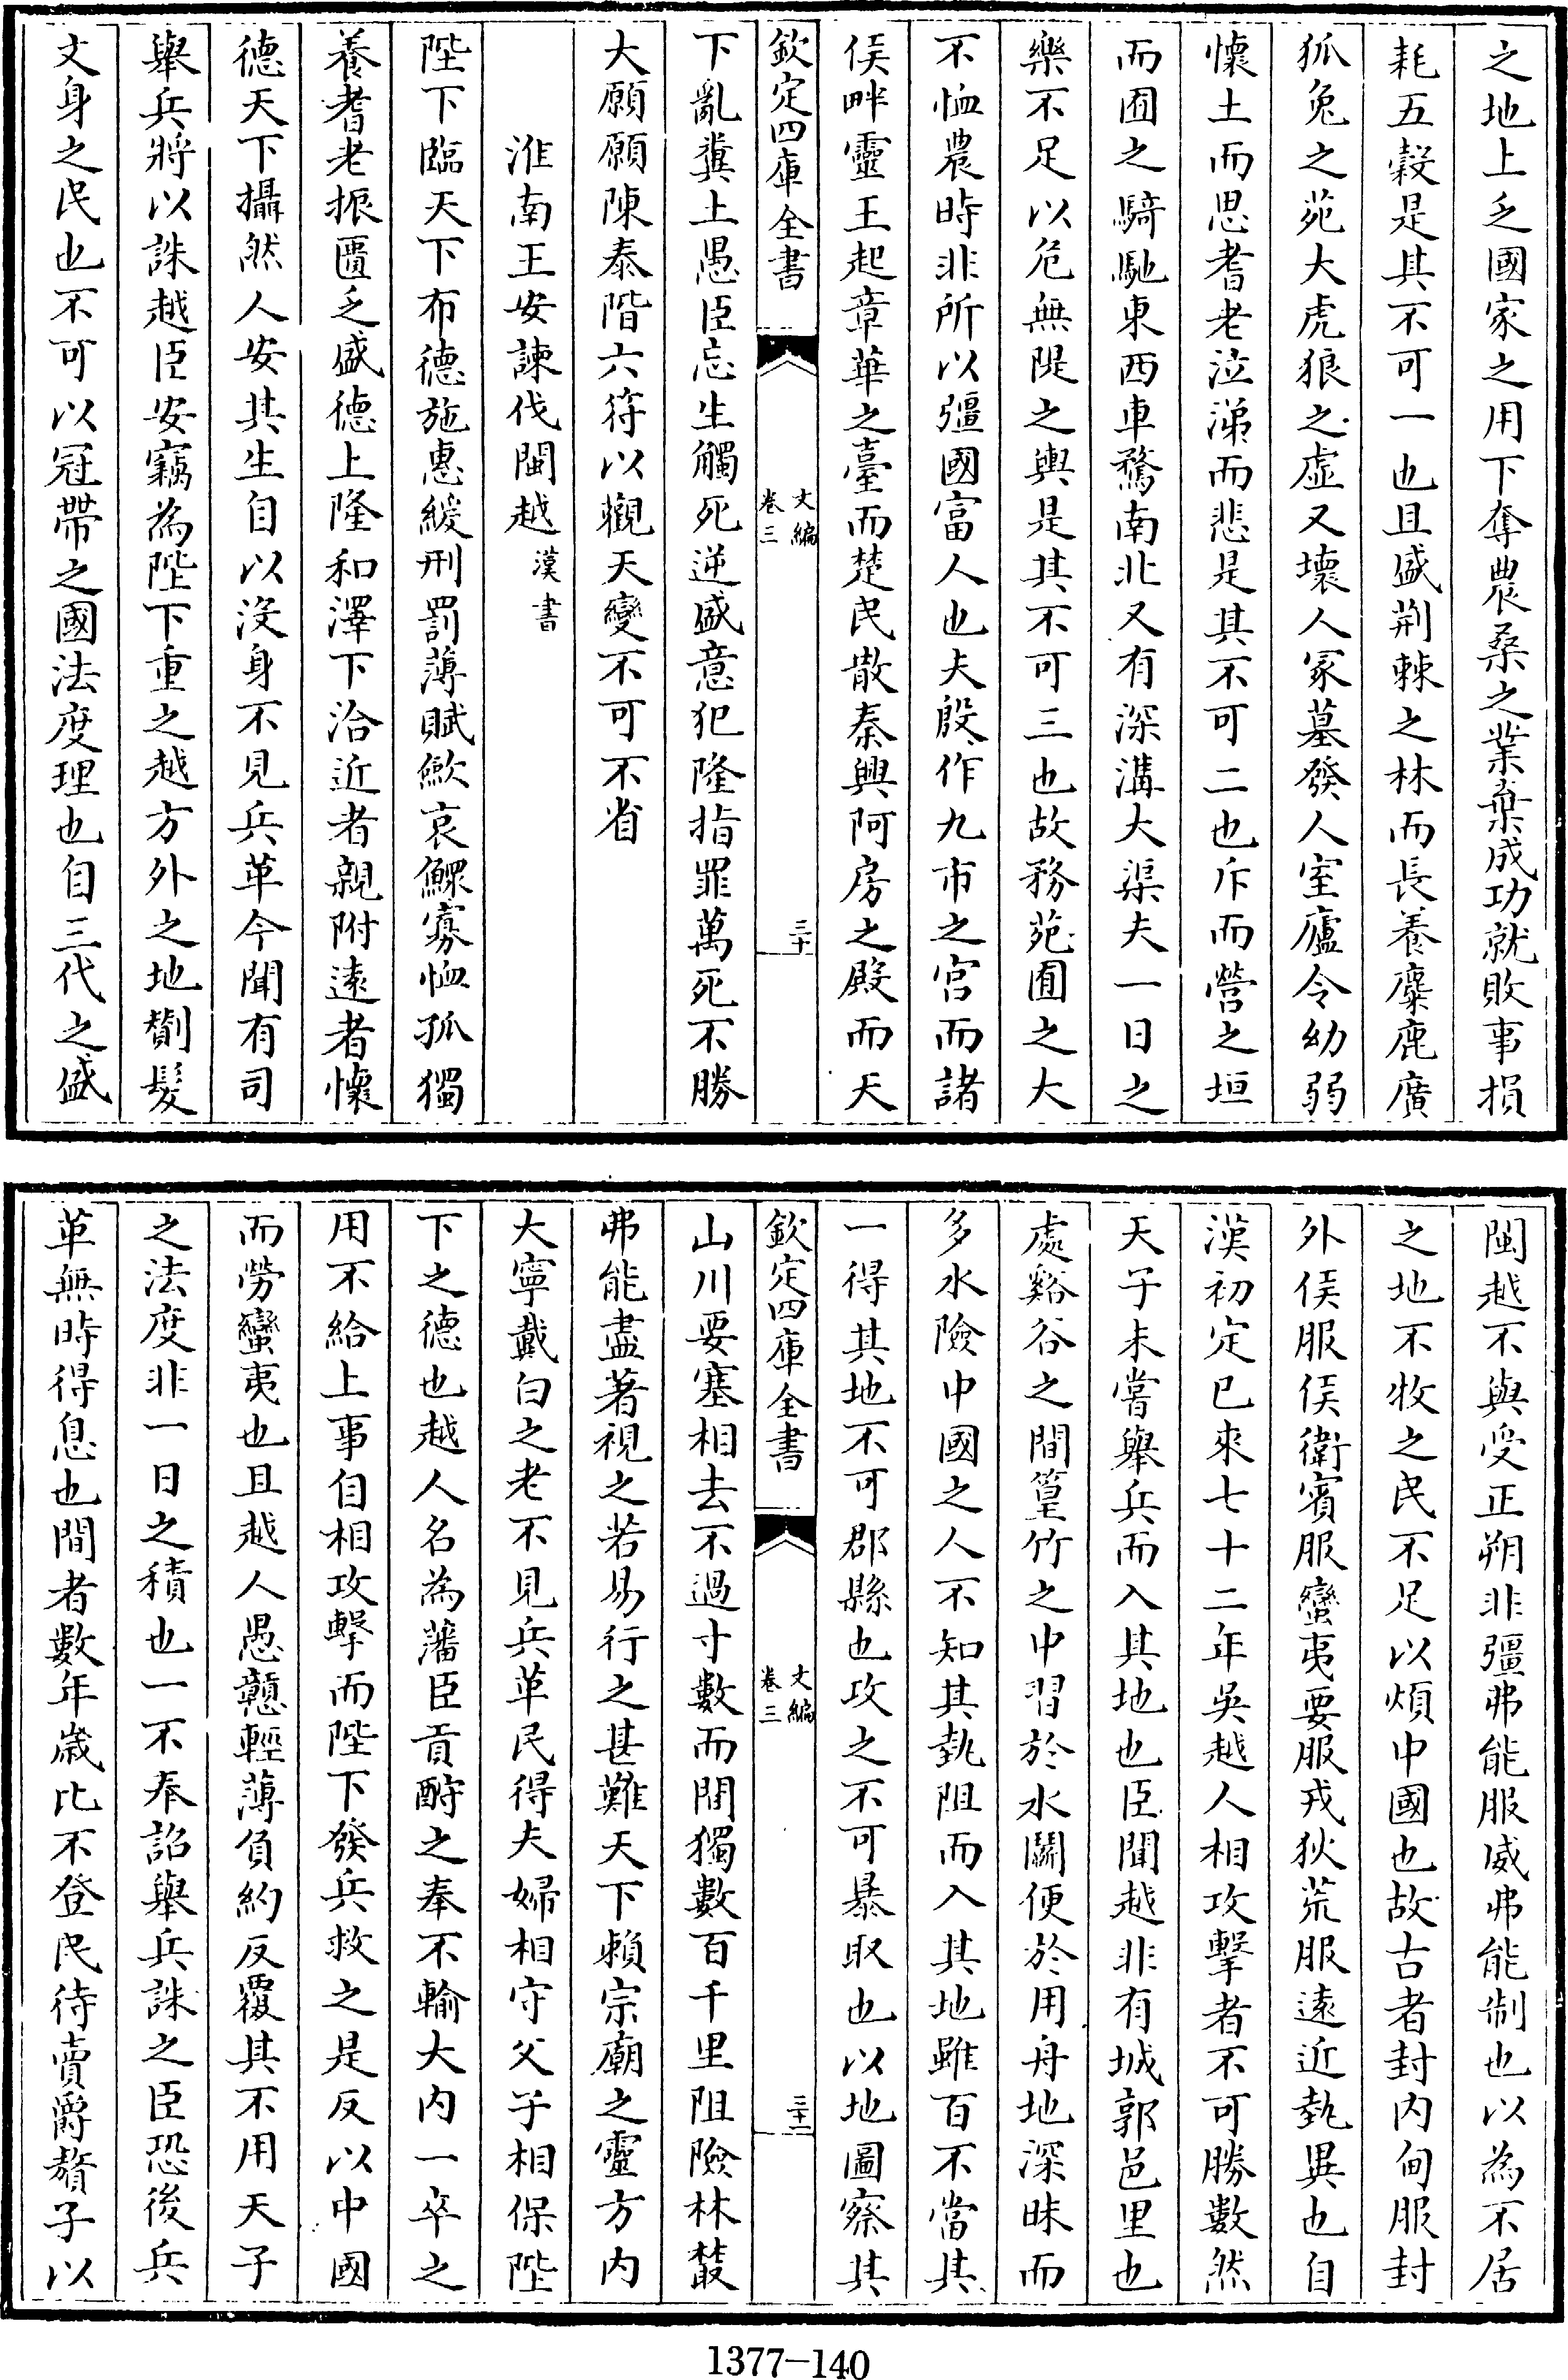 之地上乏國家之用下奪農桑之業棄成功就敗事損
耗五穀是其不可一也且盛荆棘之林而長養麋鹿廣
狐兔之苑大虎狼之虛又壞人冢墓發人室廬令幼弱
懷土而思耆老泣涕而悲是其不可二也斥而營之垣
而囿之騎馳東西車騖南北又有深溝大渠夫一日之
樂不足以危無隄之輿是其不可三也故務苑囿之大
不恤農時非所以彊國富人也夫殷作九市之宮而諸
侯畔靈王起章華之臺而楚民散秦興阿房之殿而天
欽定四庫全書
文編
卷三
三十
下亂糞土愚臣忘生觸死逆盛意犯隆指罪萬死不勝
大願願陳泰階六符以觀天變不可不省
淮南王安諫伐閩越漢書
陛下臨天下布德施惠緩刑罰薄賦歛哀鰥寡恤孤獨
養耆老振匱乏盛德上隆和澤下洽近者親附遠者懷
德天下攝然人安其生自以沒身不見兵革今聞有司
舉兵將以誅越臣安竊為陛下重之越方外之地劗髮
文身之民也不可以冠帶之國法度理也自三代之盛
閩越不與受正朔非彊弗能服威弗能制也以為不居
之地不牧之民不足以煩中國也故古者封内甸服封
外侯服侯衛賓服蠻夷要服戎狄荒服遠近埶異也自
漢初定已來七十二年吳越人相攻擊者不可勝數然
天子未嘗舉兵而入其地也臣聞越非有城郭邑里也
處谿谷之間篁竹之中習於水鬭便於用舟地深昧而
多水險中國之人不知其埶阻而入其地雖百不當其
一得其地不可郡縣也攻之不可暴取也以地圖察其
欽定四庫全書
文編
卷三
三十一
山川要塞相去不過寸數而間獨數百千里阻險林叢
弗能盡著視之若易行之甚難天下賴宗廟之靈方内
大寧戴白之老不見兵革民得夫婦相守父子相保陛
下之德也越人名為藩臣貢酎之奉不輸大内一卒之
用不給上事自相攻擊而陛下發兵救之是反以中國
而勞蠻夷也且越人愚戇輕薄負約反覆其不用天子
之法度非一日之積也一不奉詔舉兵誅之臣恐後兵
革無時得息也間者數年歲比不登民待賣爵贅子以
1377-140